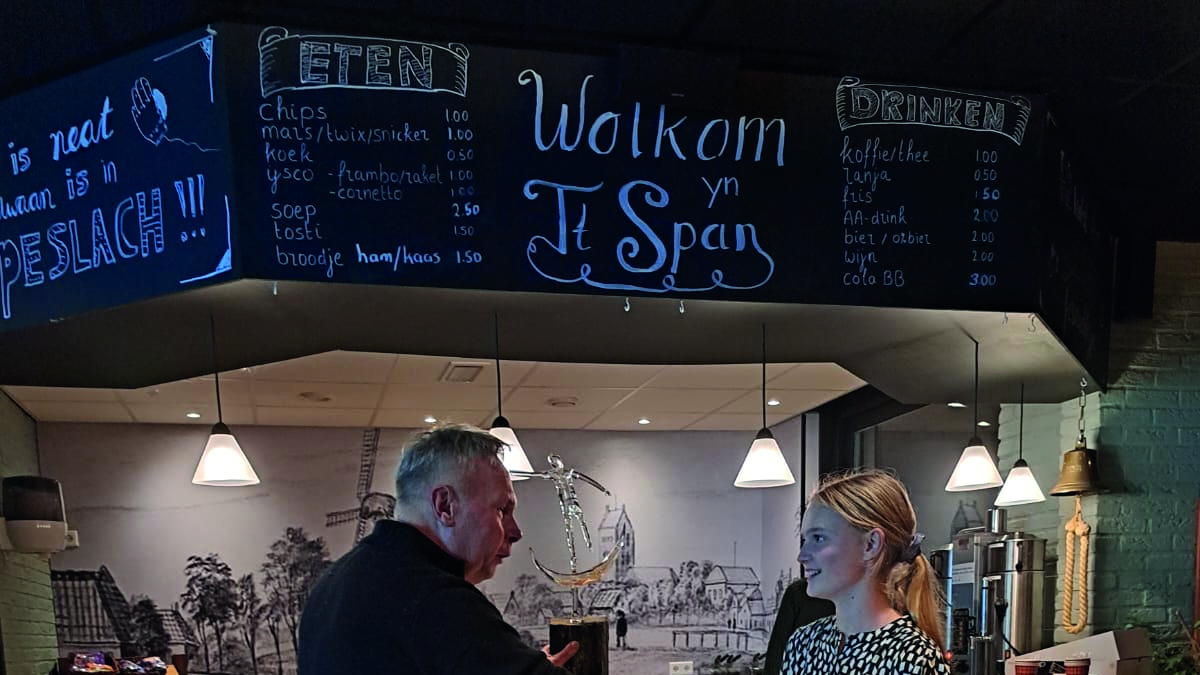 is neat
waan is in
PESLACH!!!
ETEN
chips 1.00
mars/twix/snicker 1.00
koek 0.50
ysco - frambo/raket 1.00
- cornetto 1.00
soep 2.50
tosti 1.50
broodje ham/kaas 1.50
Wolkom
yn
It Span
DRINKEN
koffie/thee 1.00
ranja 0.50
fris 1.50
AA-drink 2.00
bier / 0%bier 2.00
wijn 2.00
cola BB 3.00